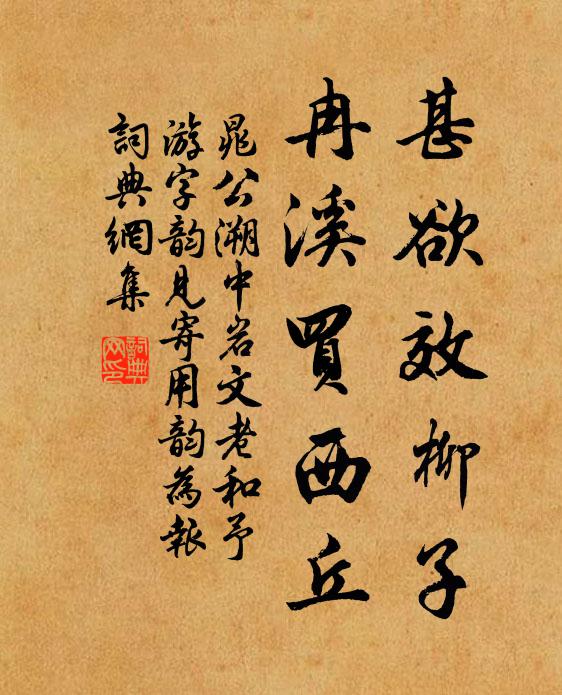 甚欲效柳子
冉溪買西丘
晁公溯中岩文老和予
游字韵見寄用韵為報
詞典網集
詞典網印